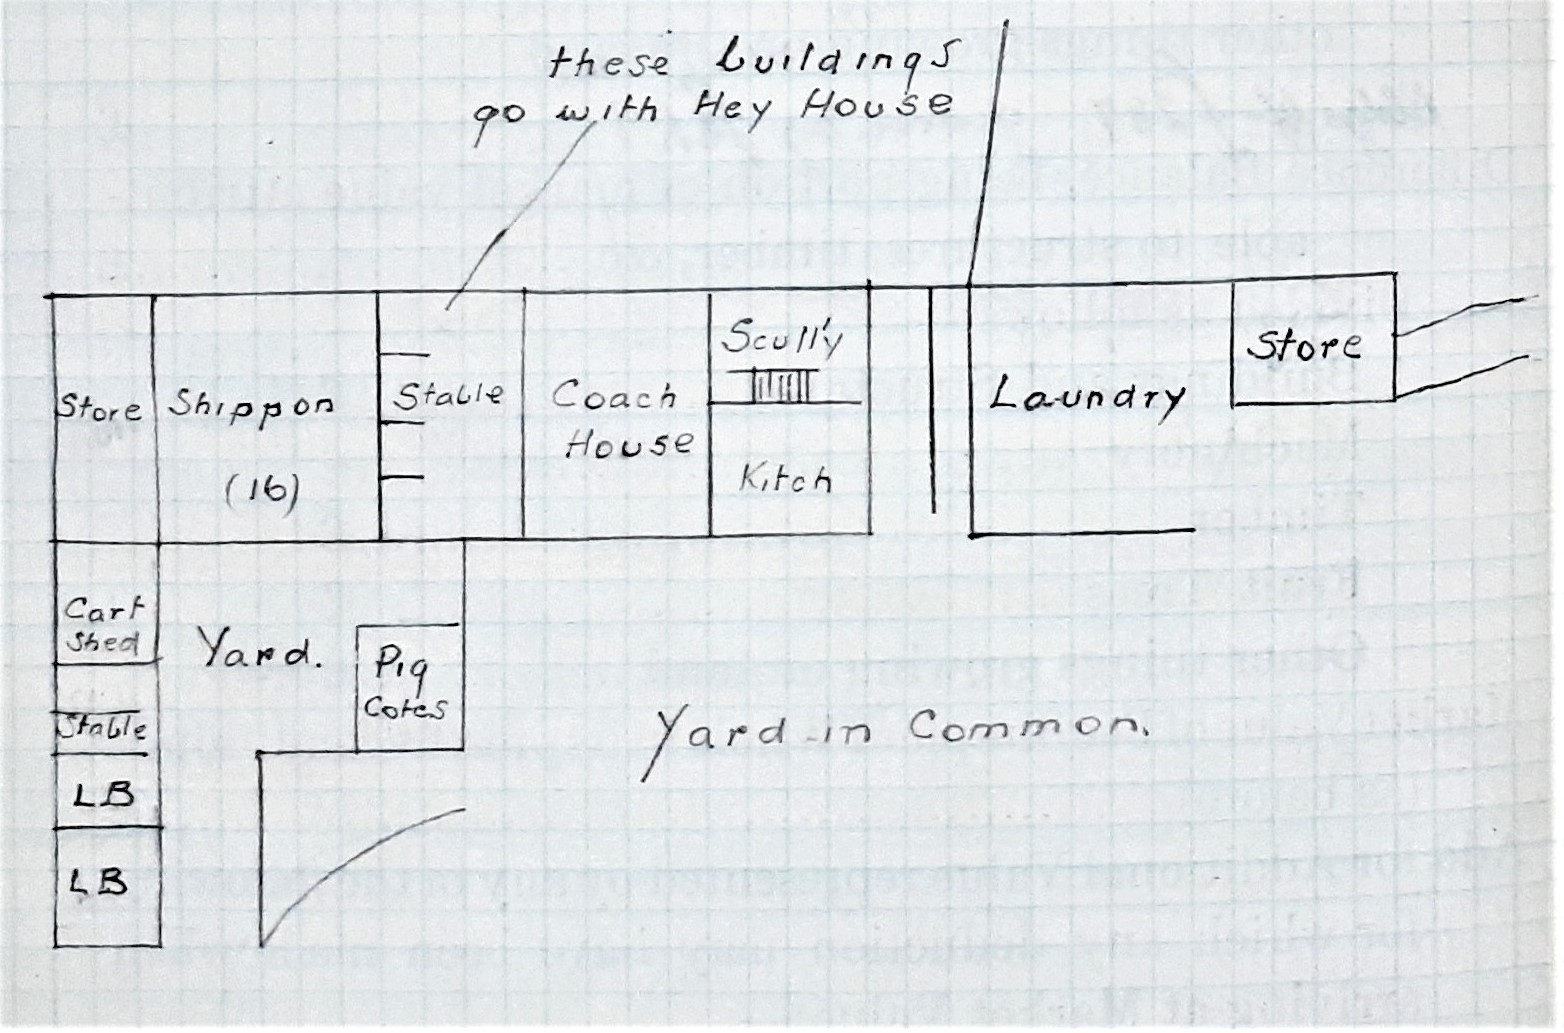 these buildings
go with Hey House
Store
Shippon
(16)
Stable
Coach
House
Scull'y
Kitch
Laundry
Store
Cart
Shed
Yard.
Pig
Cotes
Stable
LB
LB
Yard in Common.